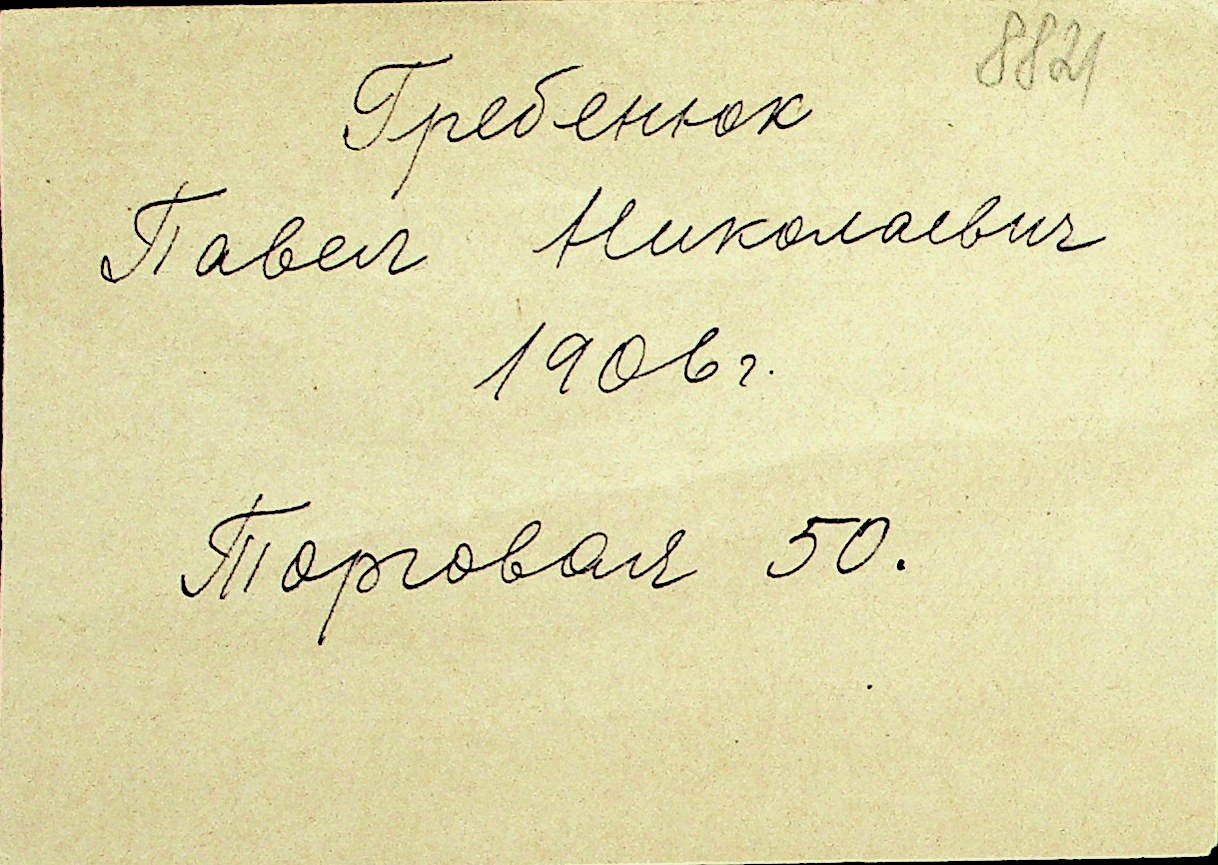 8821
Гребенюк
Павел Николаевич
1906 г.
Торговая 50.